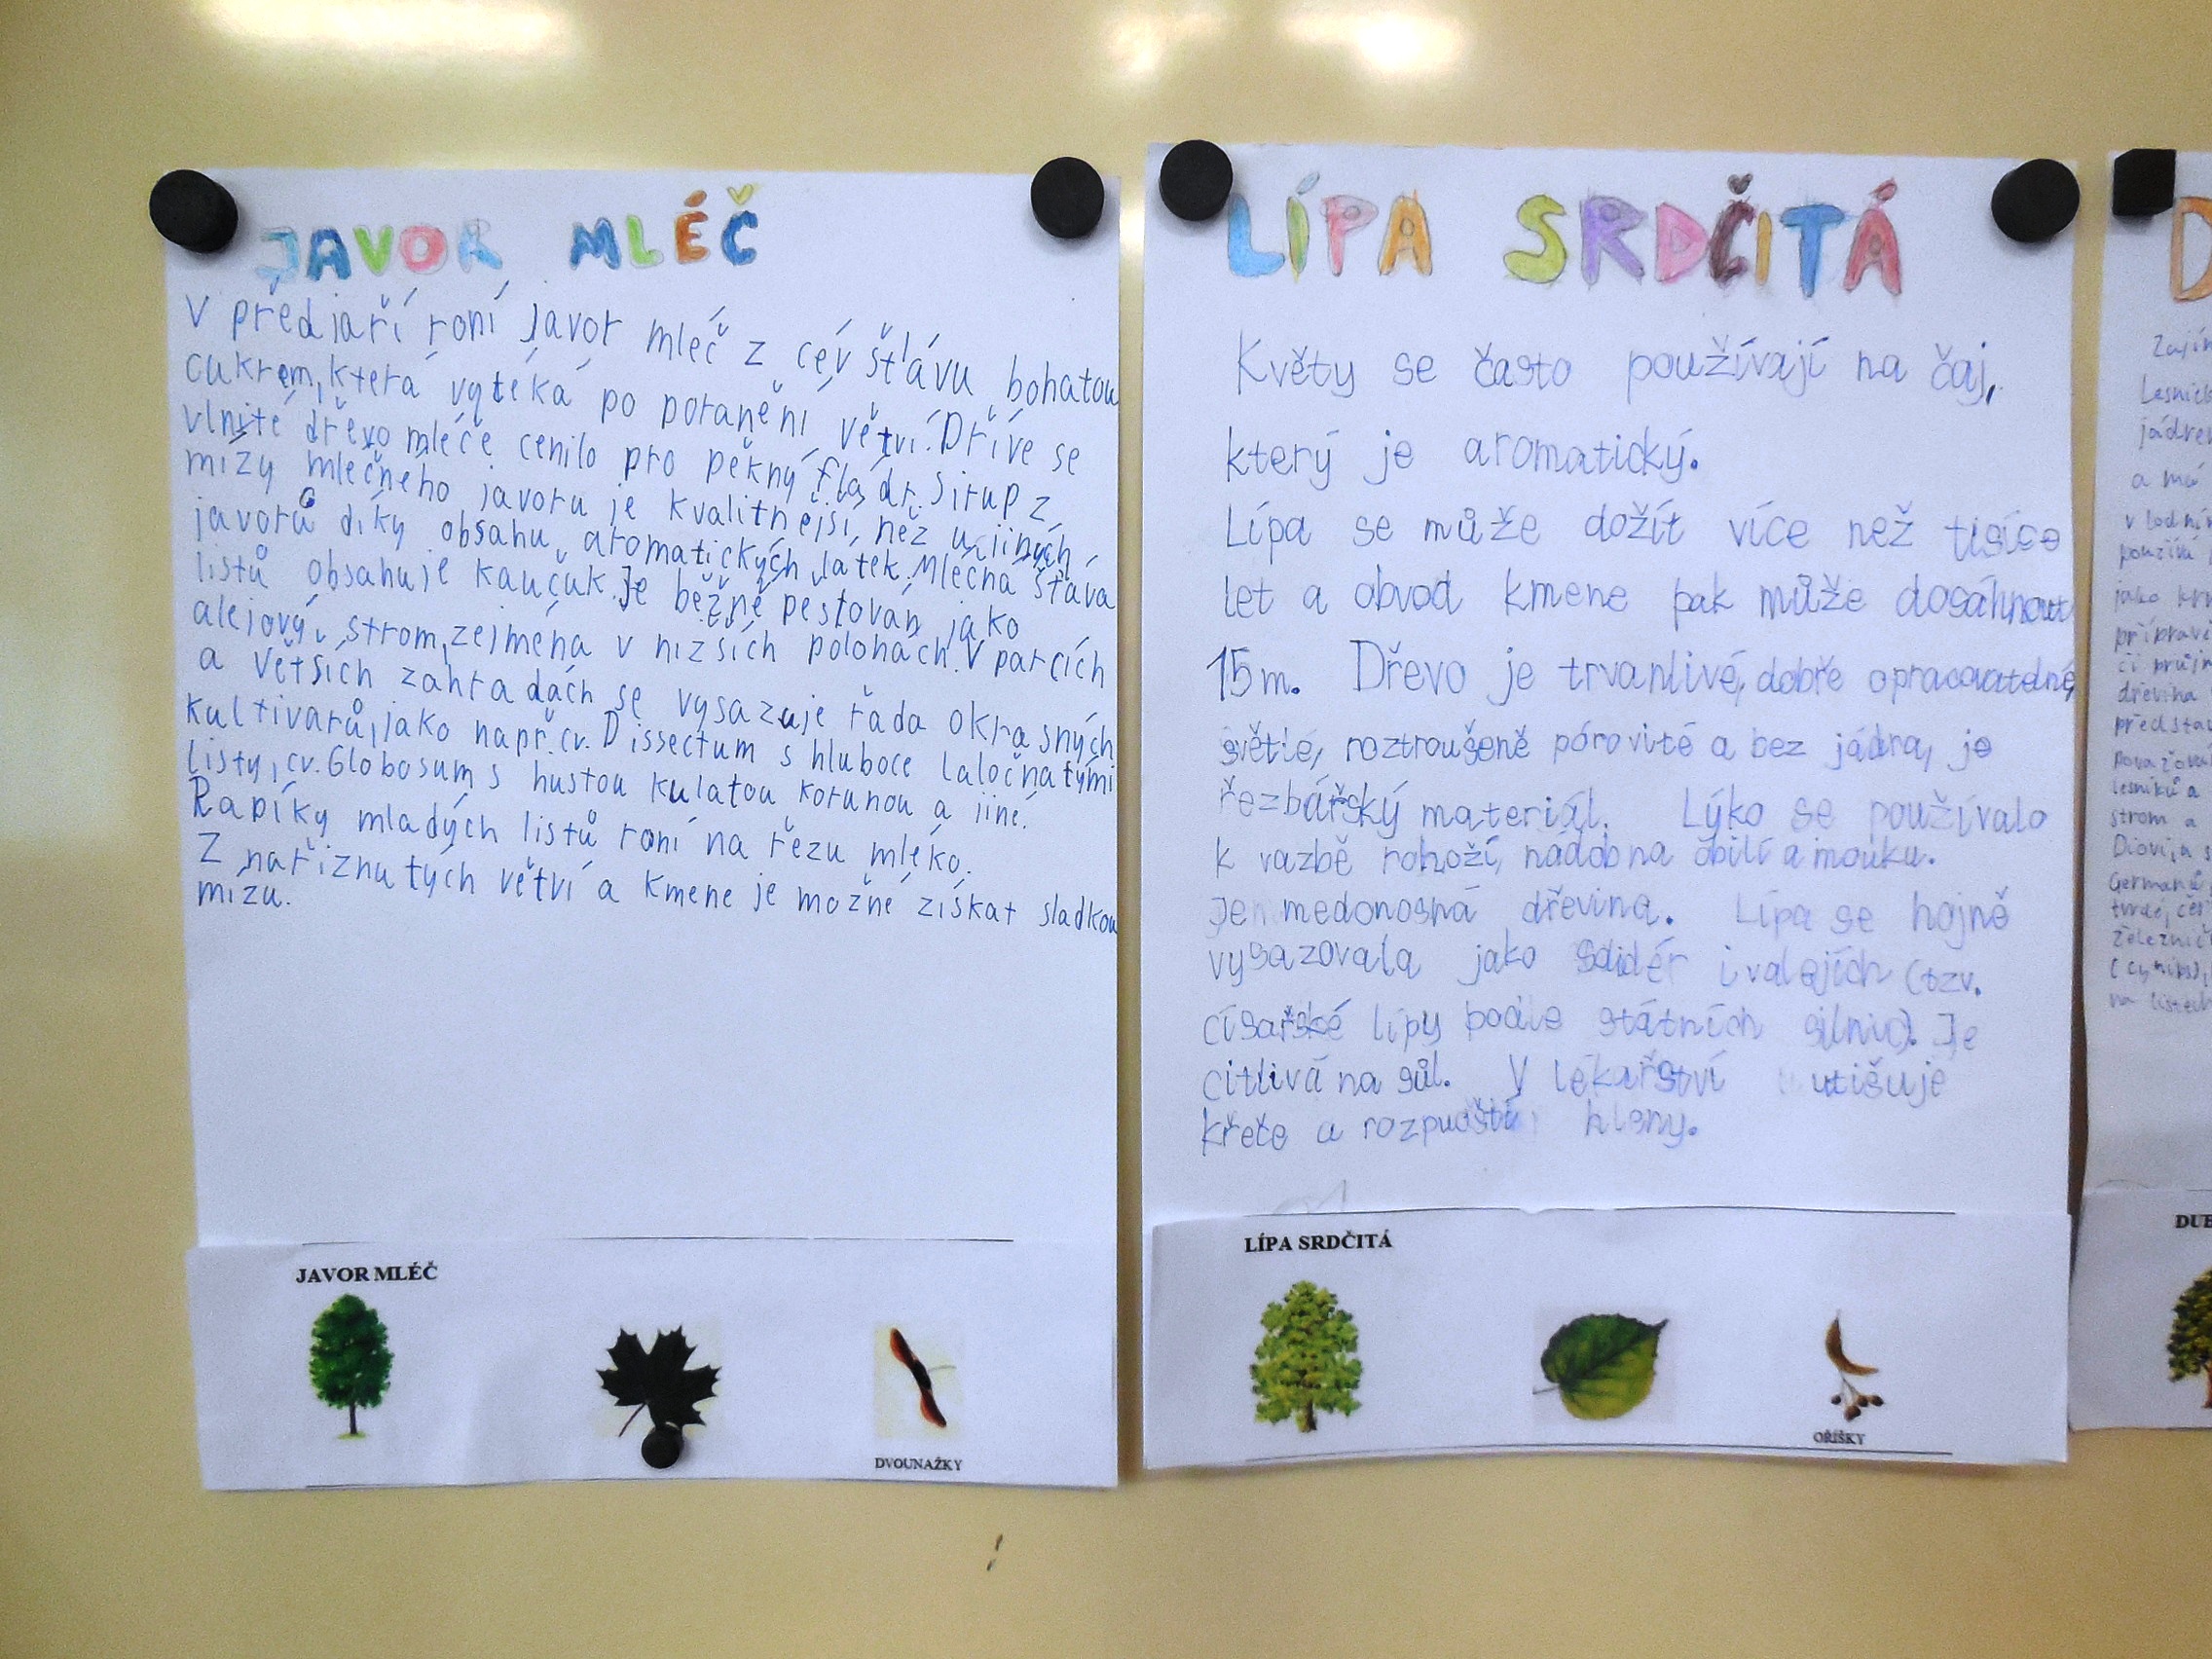 JAVOR MLÉČ
V předjaří roní javor mléč z cév šťávu bohatou
cukrem, která vytéká po poranění větví. Dříve se
vlnité dřevo mléče cenilo pro pěkný fládr. Sirup z
mízy mléčného javoru je kvalitnější, než u jiných
javorů díky obsahu aromatických látek. Mléčná šťáva
listů obsahuje kaučuk. Je běžně pěstován jako
alejový strom, zejména v nižších polohách. V parcích
a větších zahradách se vysazuje řada okrasných
kultivarů, jako např. cv. Dissectum s hluboce laločnatými
listy, cv. Globosum s hustou kulatou korunou a jiné.
Řapíky mladých listů roní na řezu mléko.
Z naříznutých větví a kmene je možné získat sladkou
mízu.
JAVOR MLÉČ
DVOUNAŽKY
LÍPA SRDČITÁ
Květy se často používají na čaj,
který je aromatický.
Lípa se může dožít více než tisíce
let a obvod kmene pak může dosáhnout
15m. Dřevo je trvanlivé, dobře opracovatelné,
světlé, roztroušeně pórovité a bez jádra, je
řezbářský materiál. Lýko se používalo
k vazbě rohoží, nádob na obilí a mouku.
Je medonosná dřevina. Lípa se hojně
vysazovala jako solidér i v alejích (tzv.
císařské lípy podle státních silnic). Je
citlivá na sůl. V lékařství utišuje
křeče a rozpouští hleny.
LÍPA SRDČITÁ
OŘÍŠKY
D
jádre
a má
v lodní
používá
jako
dřevina
lesníků a
strom a
Germánů
na listech
DUB